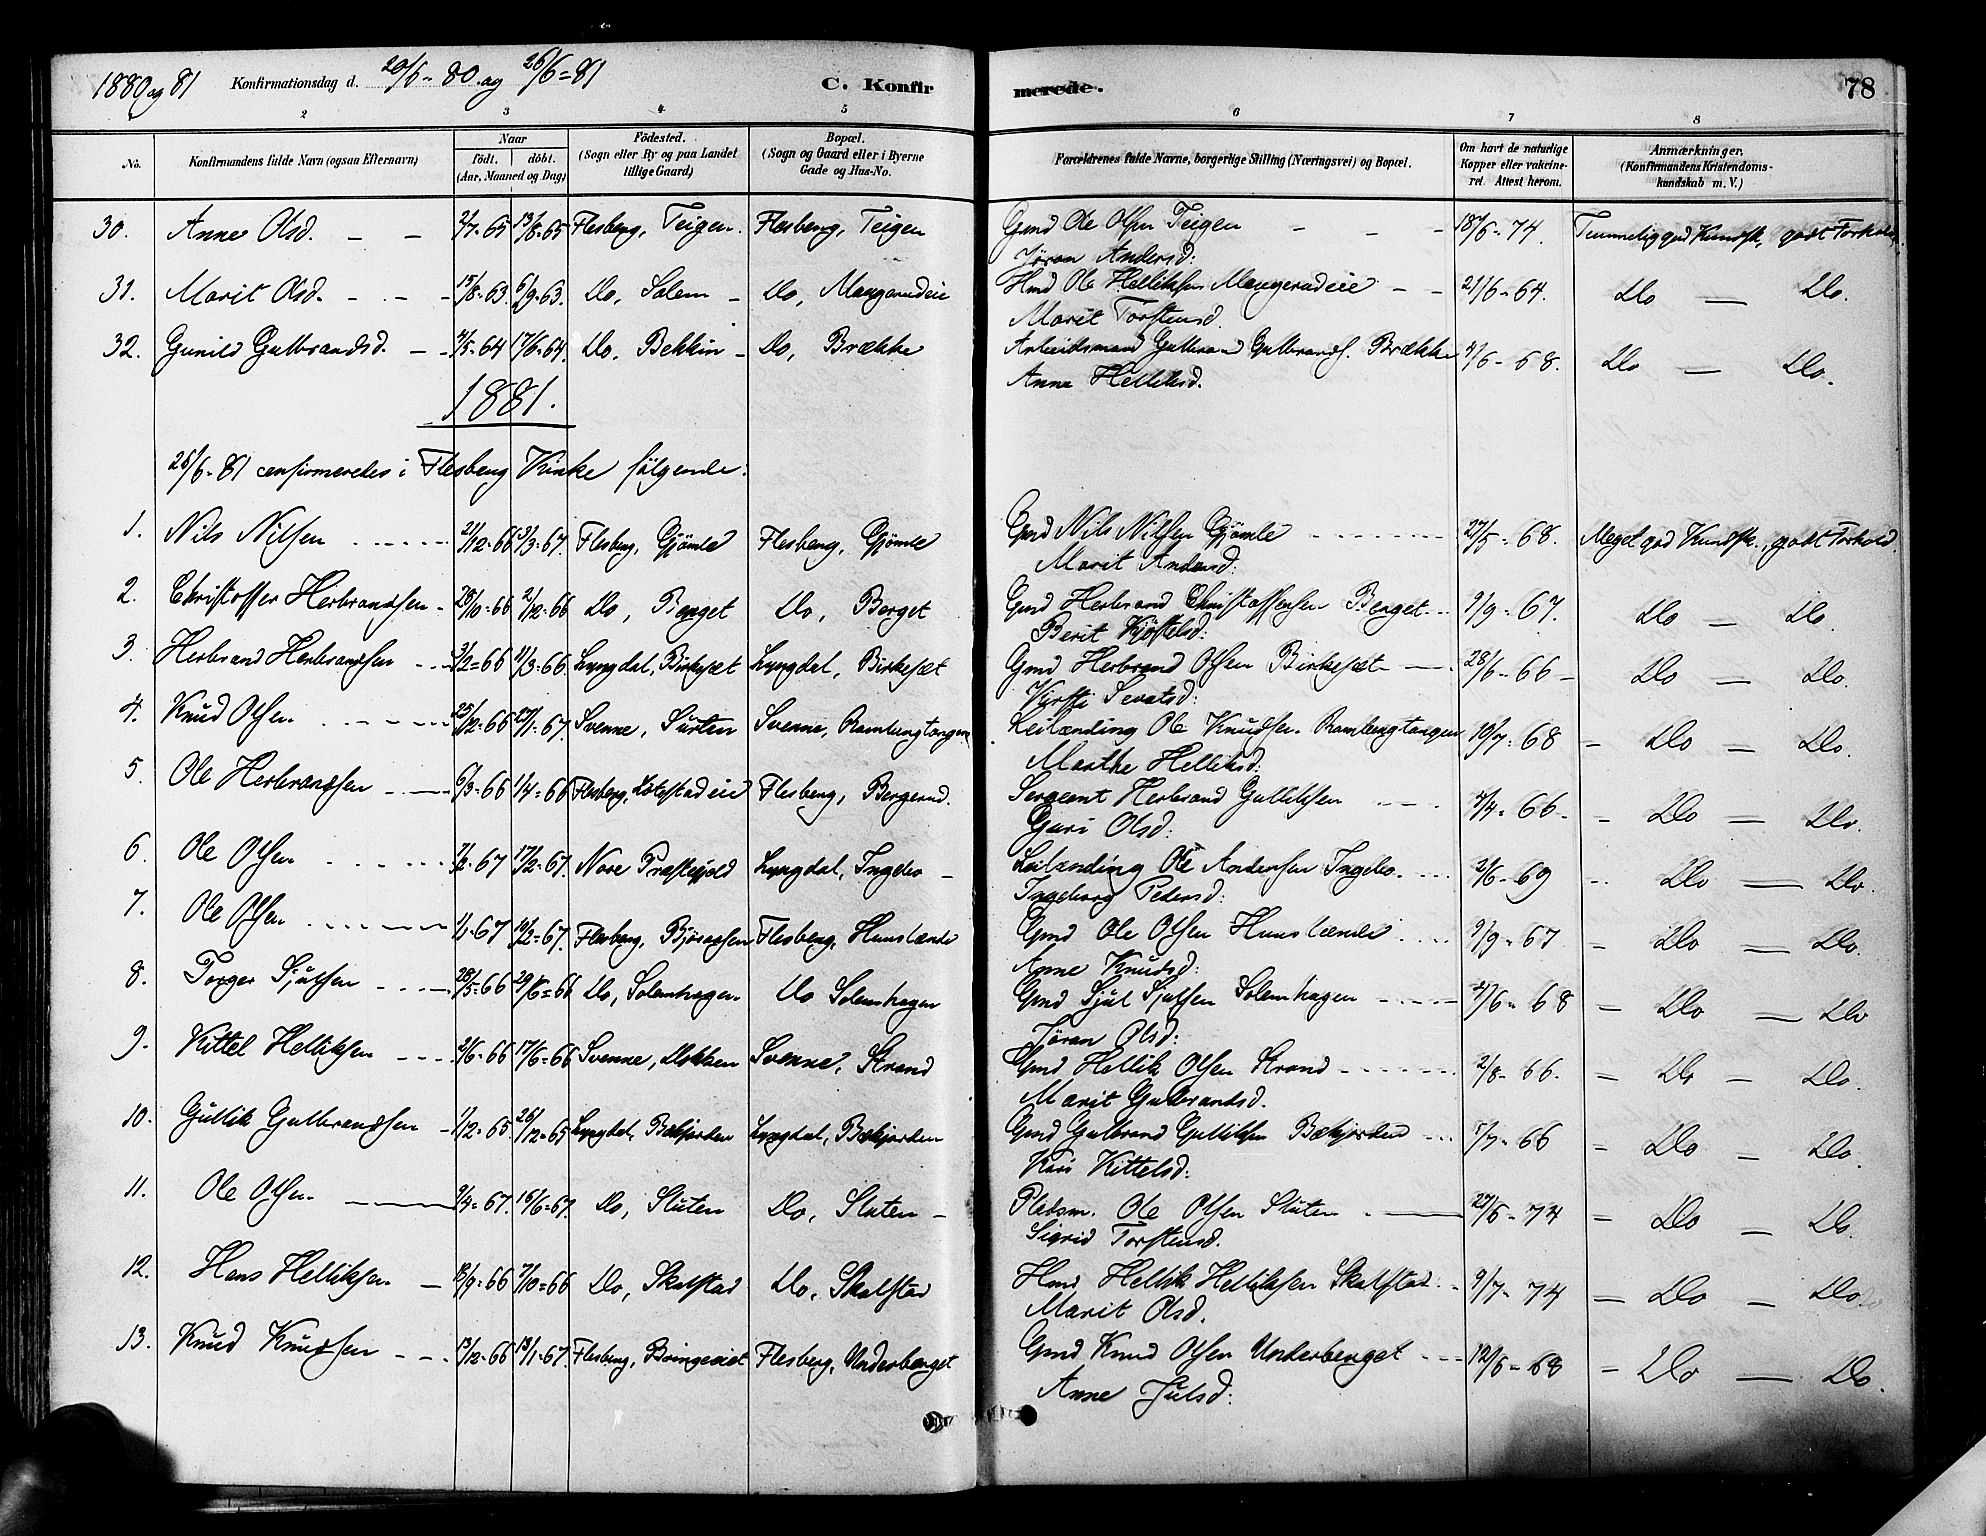 1880 og 81 Konfirmationsdag d. 20/6-80 og 26/6=81 C. Konfirmerede. 78
2 3 4 5 6 7 8
No. Konfirmandens fulde Navn (ogsaa Efternavn) Naar födt. döbt. (Aar, Maaned og Dag) Födested. (Sogn eller By og paa Landet tillige Gaard) Bopæl. (Sogn og Gaard eller i Byerne Gade og Hus-No. Forældrenes fulde Navne, borgerlige Stilling (Næringsvei) og Bopæl. Om havt de naturlige Kopper eller vakcineret. Attest herom. Anmærkninger. (Konfirmandens Kristendomskundskab m. V.)
30. Anne Olsd. 2/7-65 13/8-65 Flesberg, Teigen. Flesberg, Teigen Gmd Ole Olsen Teigen 18/6-74. Temmelig god Kundsk., godt Forhold
Jöran Andersd:
31. Marit Olsd. 15/8-63 6/9-63. Do, Solem Do, Maugerudeie Hmd Ole Helliksen Maugerudeie 21/6-64. Do Do.
Marit Torstensd.
32. Gunild Gulbrandsd. 7/5-64 17/6-64. Do, Bekkin Do, Brække Arbeidsmand Gulbrand Gulbrands. Brække 4/6-68. Do Do.
Anne Helliksd.
1881.
26/6-81 confirmeredes i Flesberg Kirke følgende:
1. Nils Nilsen 21/12-66 3/3-67. Flesberg, Gjömle Flesberg, Gjömle Gmd Nils Nilsen Gjömle 27/5-68. Meget god Kundsk., godt Forhold.
Marit Andersd:
2. Christoffer Herbrandsen 28/10-66 2/12-66 Do, Berget Do, Berget Gmd Herbrand Christoffersen Berget 9/9-67. Do Do.
Berit Kjöstelsd:
3. Herbrand Herbrandsen 3/2=66 11/3-66 Lyngdal, Birkesæt Lyngdal, Birkesæt Gmd Herbrand Olsen Birkesæt 28/6-66 Do Do.
Kirsti Sevatsd:
4. Knud Olsen 25/12-66 27/1-67. Svenne, Surten Svenne, Rambergtangen Leilænding Ole Knudsen Rambergtangen 10/7-68 Do Do.
Marthe Helliksd:
5. Ole Herbrandsen 6/3-66 1/4-66 Flesberg, Lotestadeie Flesberg, Bergerud. Sergeant Herbrand Gulliksen 4/4-66 Do Do.
Guri Olsd:
6. Ole Olsen 17/2-67. Nore Præstegjeld Lyngdal, Ingebo Leilænding Ole Andersen Ingebo. 2/6-69 Do Do.
Ingeborg Pedersd:
7. Ole Olsen 1/1-67 10/2-67. Flesberg, Flesberg, Hunslænde Gmd Ole Olsen Hunslænde 9/9-67 Do Do.
Anne Knudsd:
8. Torger Sjulsen 28/5-66 29/6=66 Do, Solemhagen Do Solemhagen Gmd Sjul Sjulsen Solemhagen 27/6-68 Do Do
Jöran Olsd:
9. Kittel Helliksen 2/6-66 17/6-66 Svenne, Dokken Svenne, Strand Gmd Hellik Olsen Strand 2/8-66. Do Do.
Marit Gulbrandsd.
10. Gullik Gulbrandsen 1/12-65. 26/12-65 Lyngdal, Bækjorden Lyngdal, Bækjorden Gmd Gulbrand Gulliksen Bækjorden 7/7-66 Do Do.
Kari Kittelsd:
11. Ole Olsen 9/4-67. 16/6-67. Do, Sluten Do, Sluten Pladsm. Ole Olsen Sluten 29/6-74 Do Do.
Sigrid Torstensd.
12. Hans Helliksen 18/9-66 7/10=66 Do, Skalstad Do, Skalstad Hmd Hellik Helliksen Skalstad 9/7-74 Do Do
Marit Olsd.
13. Knud Knudsen 13/12-66 13/1-67 Flesberg, Bringeeiet Flesberg, Underberget Gmd Knud Olsen Underberget 12/6-68 Do Do.
Anne Julsd: